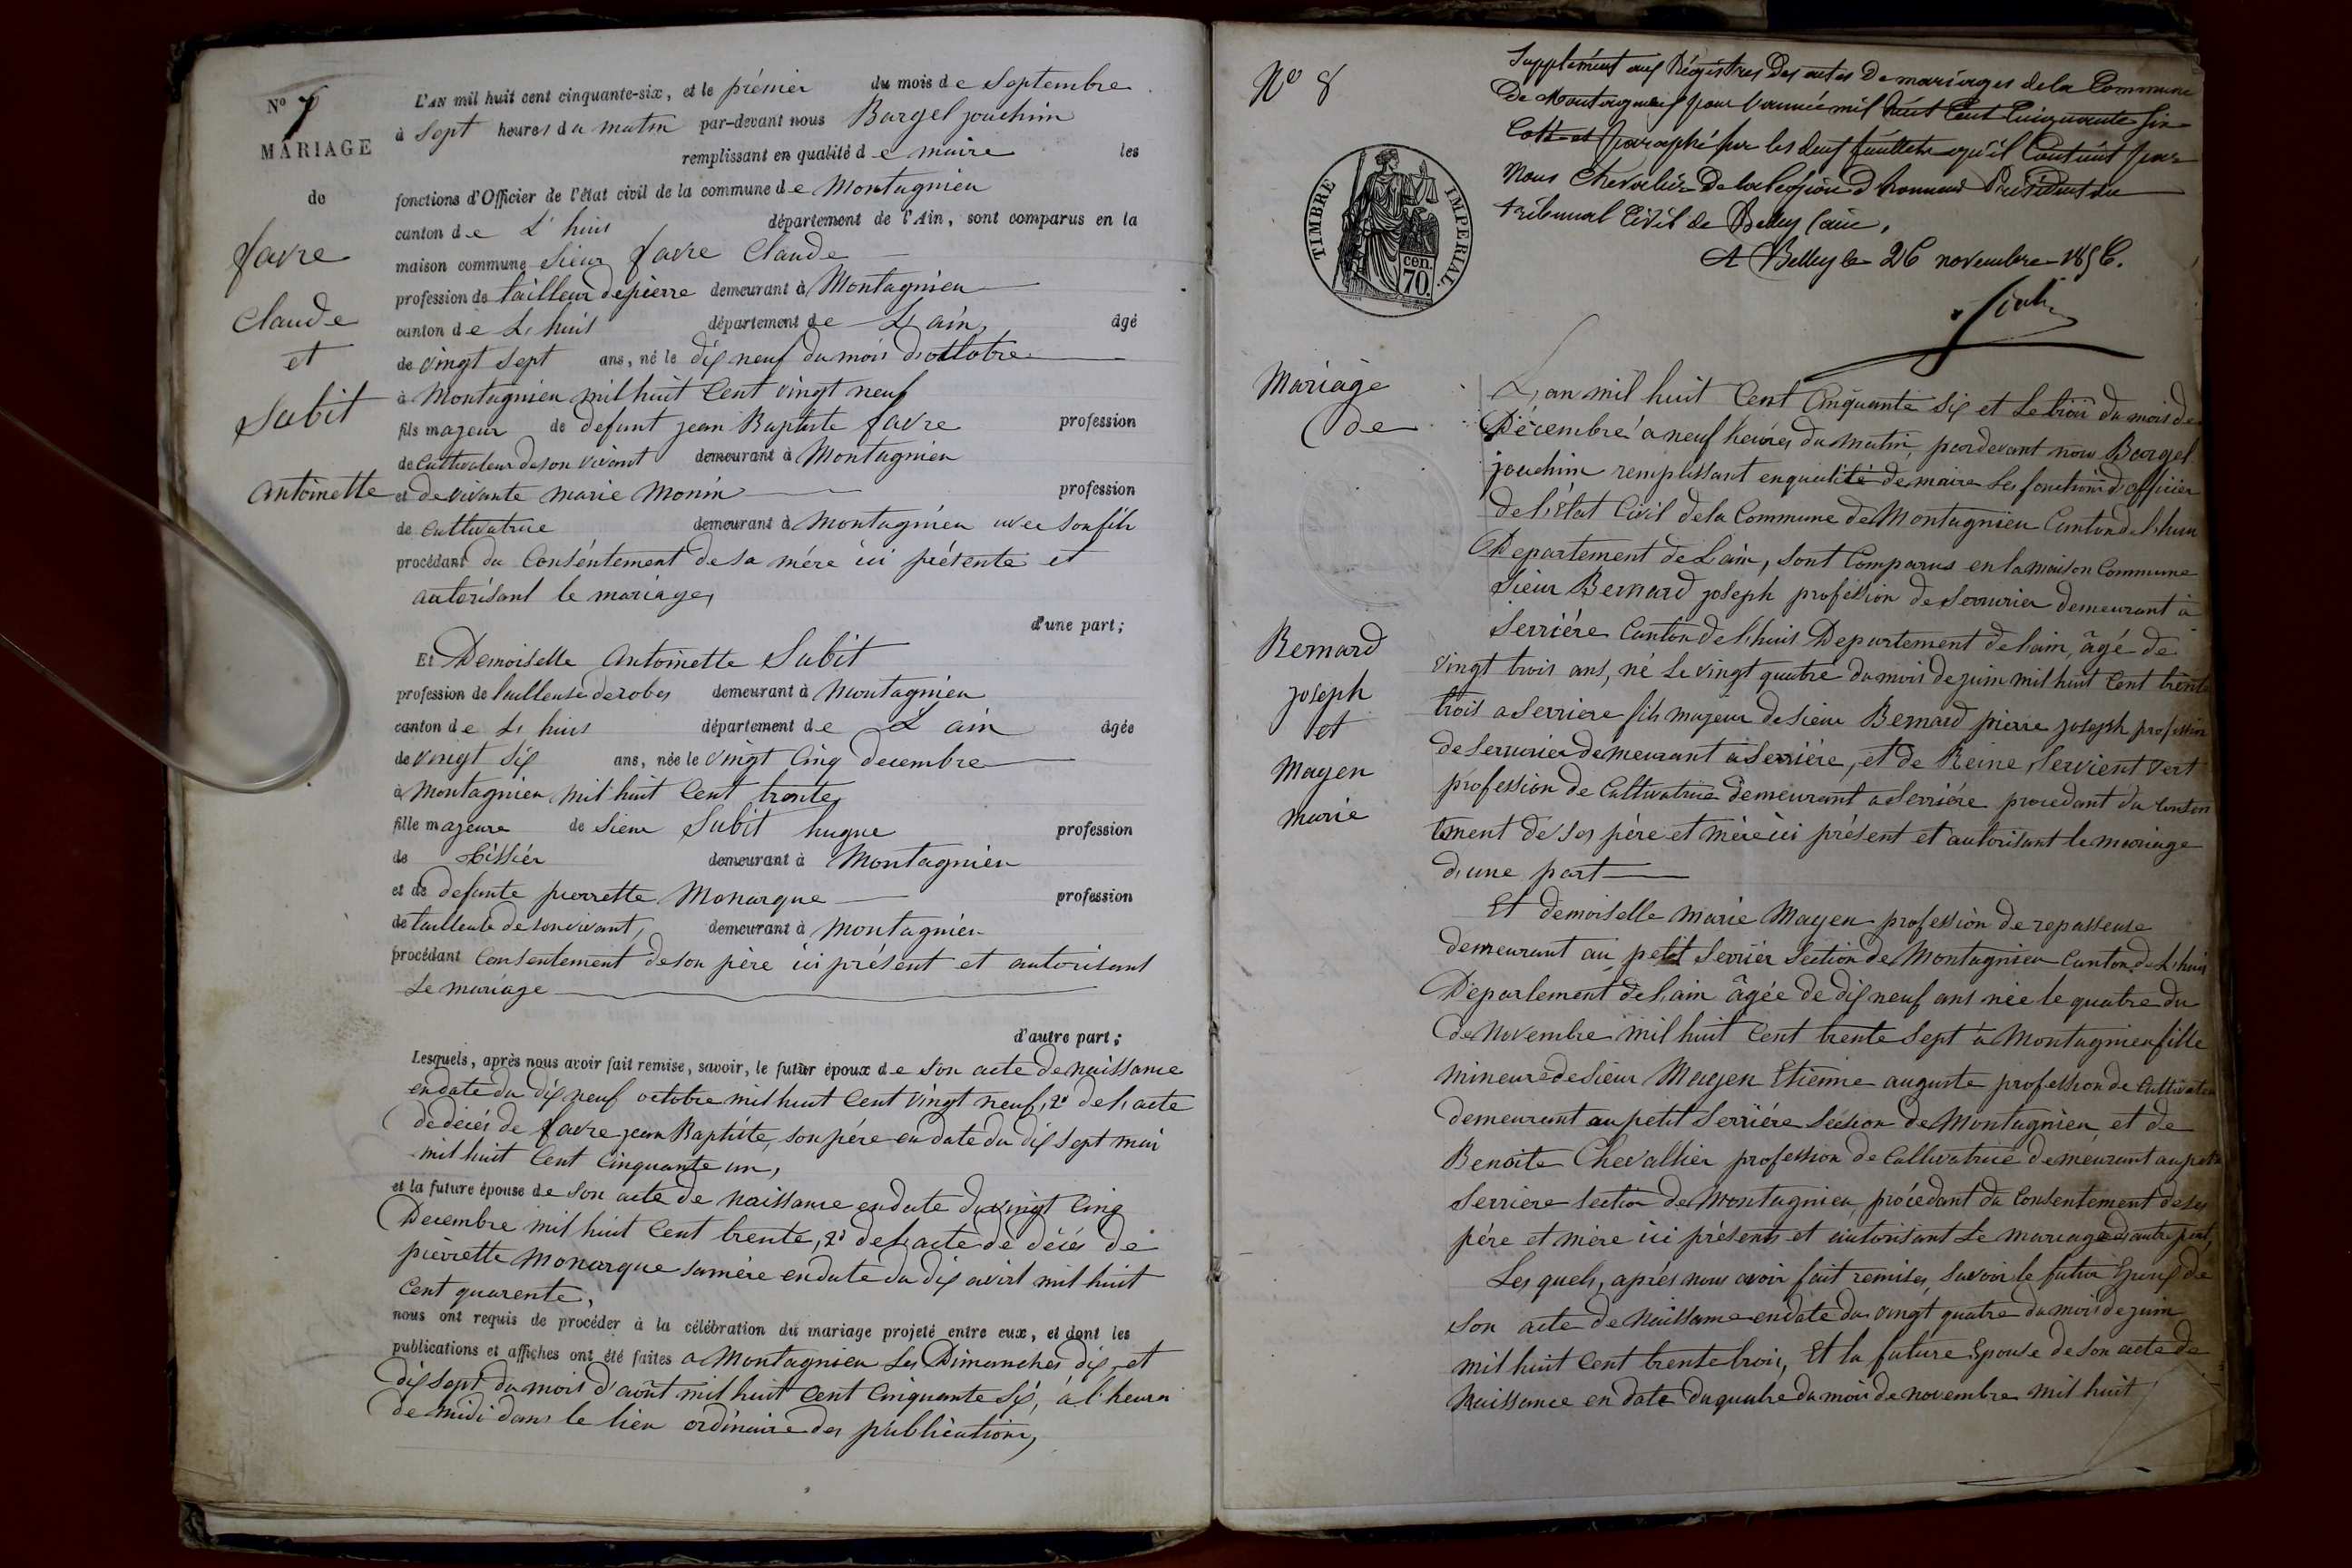 N° 7
MARIAGE
de
favre
Claude
et
Subit
antoinette
L'AN mil huit cent cinquante-six, et le prémier du mois de Septembre
à Sept heures du matin par-devant nous Bargel joachim
remplissant en qualité de maire les
fonctions d'Officier de l'état civil de la commune de Montagnieu
canton de L'huis département de l'Ain, sont comparus en la
maison commune Sieur favre Claude
profession de tailleur de pierre demeurant à Montagnieu
canton de L, huis département de L, ain, âgé
de vingt sept ans, né le dix neuf du mois d'octobre
à Montagnieu mil huit Cent vingt neuf
fils majeur de defunt jean Baptiste favre profession
de Cultivateur de son vivant demeurant à Montagnieu
et de vivante marie Monin profession
de Cultivatrice demeurant à Montagnieu avec son fils
procédant du Consentement de sa mére ici présente et
autorisant le mariage,
d'une part;
Et Demoiselle Antoinette Subit
profession de tailleuse de robes demeurant à Montagnieu
canton de L, huis département de L ain âgée
de vingt six ans, née le vingt Cinq decembre
à Montagnieu mil huit Cent trente,
fille majeure de Sieur Subit hugue profession
de Tissier demeurant à Montagnieu
et de defunte pierrette Monarque profession
de tailleuse de son vivant, demeurant à Montagnieu
procédant Consentement de son père ici présent et autorisant
Le mariage
d'autre part;
Lesquels, après nous avoir fait remise, savoir, le futur époux de son acte de naissance
en date du dix neuf octobre mil huit Cent vingt neuf, 2° de l, acte
de décés de favre jean Baptiste, son pére en date du dix sept mai
mil huit Cent Cinquante un,
et la future épouse de son acte de naissance en date du vingt Cinq
Decembre mil huit Cent trente, 2° de l, acte de décés de
pierrette Monarque sa mére en date du dix avril mil huit
Cent quarente,
nous ont requis de procéder à la célébration du mariage projeté entre eux, et dont les
publications et affiches ont été faites a Montagnieu Les Dimanches dix, et
dix sept du mois d'août mil huit Cent Cinquante Six, à l'heure
de midi dans le lieu ordinaire des publications,
N° 8
Supplément aux Régistres des actes de mariages de la Commune
de Montagnieu pour l'année mil huit Cent Cinquante Six
Coté et paraphé sur les deux feuillets qu'il Contient par
Nous Chevalier de la légion d'honneur Président du
tribunal Civil de Belley (ain.
A Belley le 26 novembre 1856.
TIMBRE IMPERIAL.
cen.
70.
Mariage
de
Bernard
joseph
et
Mayen
marie
L, an mil huit Cent Cinquante Six et le trois du mois de
Décembre à neuf heures du matin, pardevant nous Bargel
joachim remplissant en qualité de maire les fonctions d'officier
de l, état Civil de la Commune de Montagnieu Canton de L, huis
Departement de L'ain, sont Comparus en la maison Commune
Sieur Bernard joseph profession de Serrurier demeurant à
Serriére Canton de L, huis Departement de L'ain, âgé de
vingt trois ans, né Le vingt quatre du mois de juin mil huit Cent trente
trois a Serriere fils majeur de Sieur Bernard pierre joseph profession
de Serrurier demeurant a Serriére, et de Reine Servient vert
profession de Cultivatrice demeurant a Serriére procedant du Consen
tement de ses pére et mére ici présent et autorisant le mariage
d, une part
Et demoiselle Marie Mayen profession de repasseuse
demeurant au petit Serriér Section de Montagnieu Canton de L, huis
Departement de L'ain âgée de dix neuf ans née le quatre du
de Novembre mil huit Cent trente sept à Montagnieu fille
mineure de Sieur Mayen Etienne auguste profession de Cultivateur
demeurant au petit Serriére Section de Montagnieu, et de
Benoite Chevallier profession de Cultivatrice demeurant au petit
Serriere Section de Montagnieu, procedant du Consentement de ses
pére et mère ici présents et autorisant Le mariage d, autre part,
Les quels, aprés nous avoir fait remise, Savoir le futur Epoux de
Son acte de Naissance en date du vingt quatre du mois de juin
mil huit Cent trente trois, Et la future Epouse de son acte de
Naissance en date du quatre du mois de novembre mil huit